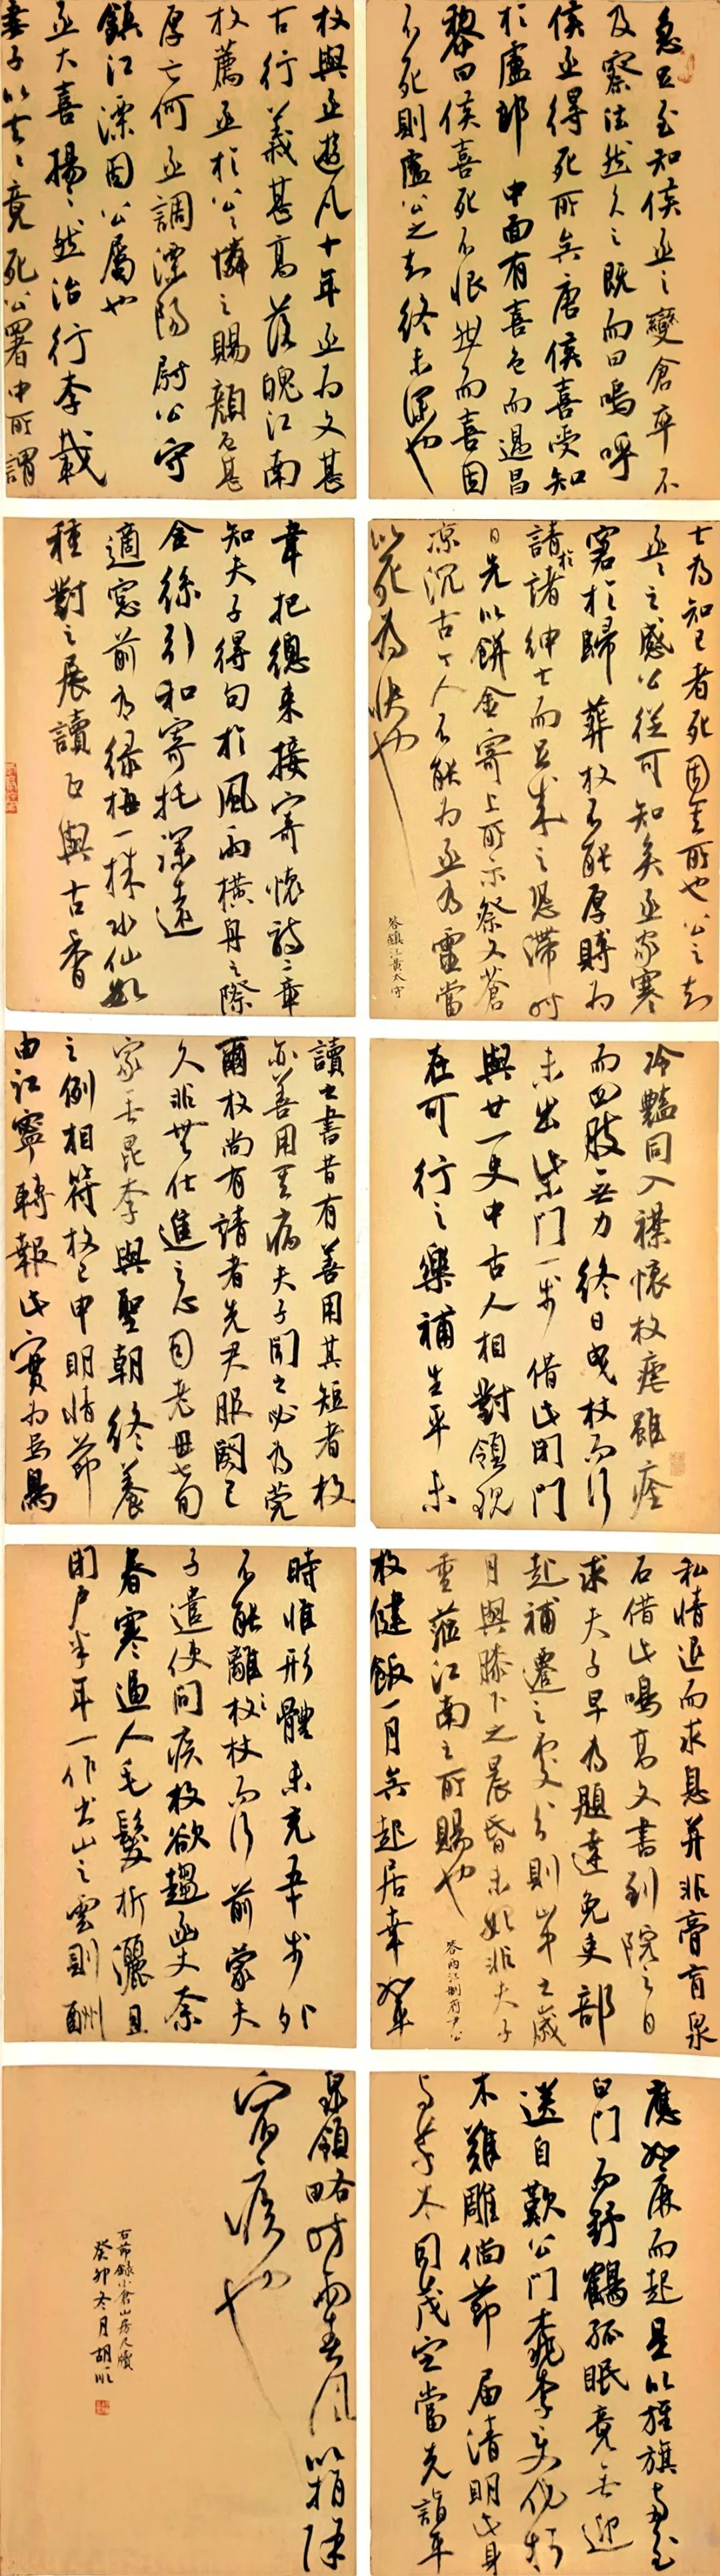 急足至知侯丞之變倉卒不
及察法然久之既而曰嗚呼
侯丞得死所矣唐侯喜受知
於盧郎中面有喜色而過昌
黎曰侯喜死不恨然而喜固
不死則盧公之知終未深也
枚與丞遊凡十年丞為文甚
古行義甚高落魄江南
枚薦丞於公公憐之賜顏色甚
厚亡何丞調溧陽尉公守
鎮江溧固公屬也
丞大喜揚揚然治行李載
妻子以去去竟死公署中所謂
士為知己者死固其所也公之知
丞丞之感公從可知矣丞家寒
窘於歸葬枚不能厚賻為
請於諸紳士而足成之恐滯時
日先以餅金寄上所示祭文蒼
涼沉古丁人不能為丞為靈當
以死為快也
答鎮江黃太守
韋把總來接寄懷詩二章
知夫子得句於風雨橫舟之際
金絲引和寄托深遠
適窓前有綠梅一株水仙數
種對之展讀正與古香
冷豔同入襟懷枚瘧雖痊
而四肢無力終日曳杖而行
未出柴門一步借此閉門
與廿一史中古人相對領現
在可行之樂補生平未
讀之書昔有善用其短者枚
亦善用其病夫子聞之必為莞
爾枚尚有請者先尹服闋已
久非無仕進之心因老母七旬
家無昆季與聖朝終養
之例相符枚已申明情節
由江寧轉報此實為烏鳥
私情退而求息并非膏肓泉
石借此鳴高文書到院之日
求夫子早為題達免吏部
起補遷之處分則山中之歲
月與膝下之晨昏未始非夫子
重蒞江南之所賜也
答兩江制府尹公
枚健飯一月矣起居幸難
時惟形體未充五步外
不能離杖杖而行前蒙夫
子遣使問疾枚欲趨函丈奈
春寒逼人毛髮折灑且
閉戶半年一作出山之雲則酬
應如麻而起是以旌旗南至
白門而野鶴孤眠竟無迎
送自歎公門桃李變化朽
木難雕倘節屆清明此身
與草木同茂定當先詣平
泉領略時雨春風以捐除
宿痰也
右節錄小倉山房尺牘
癸卯冬月胡